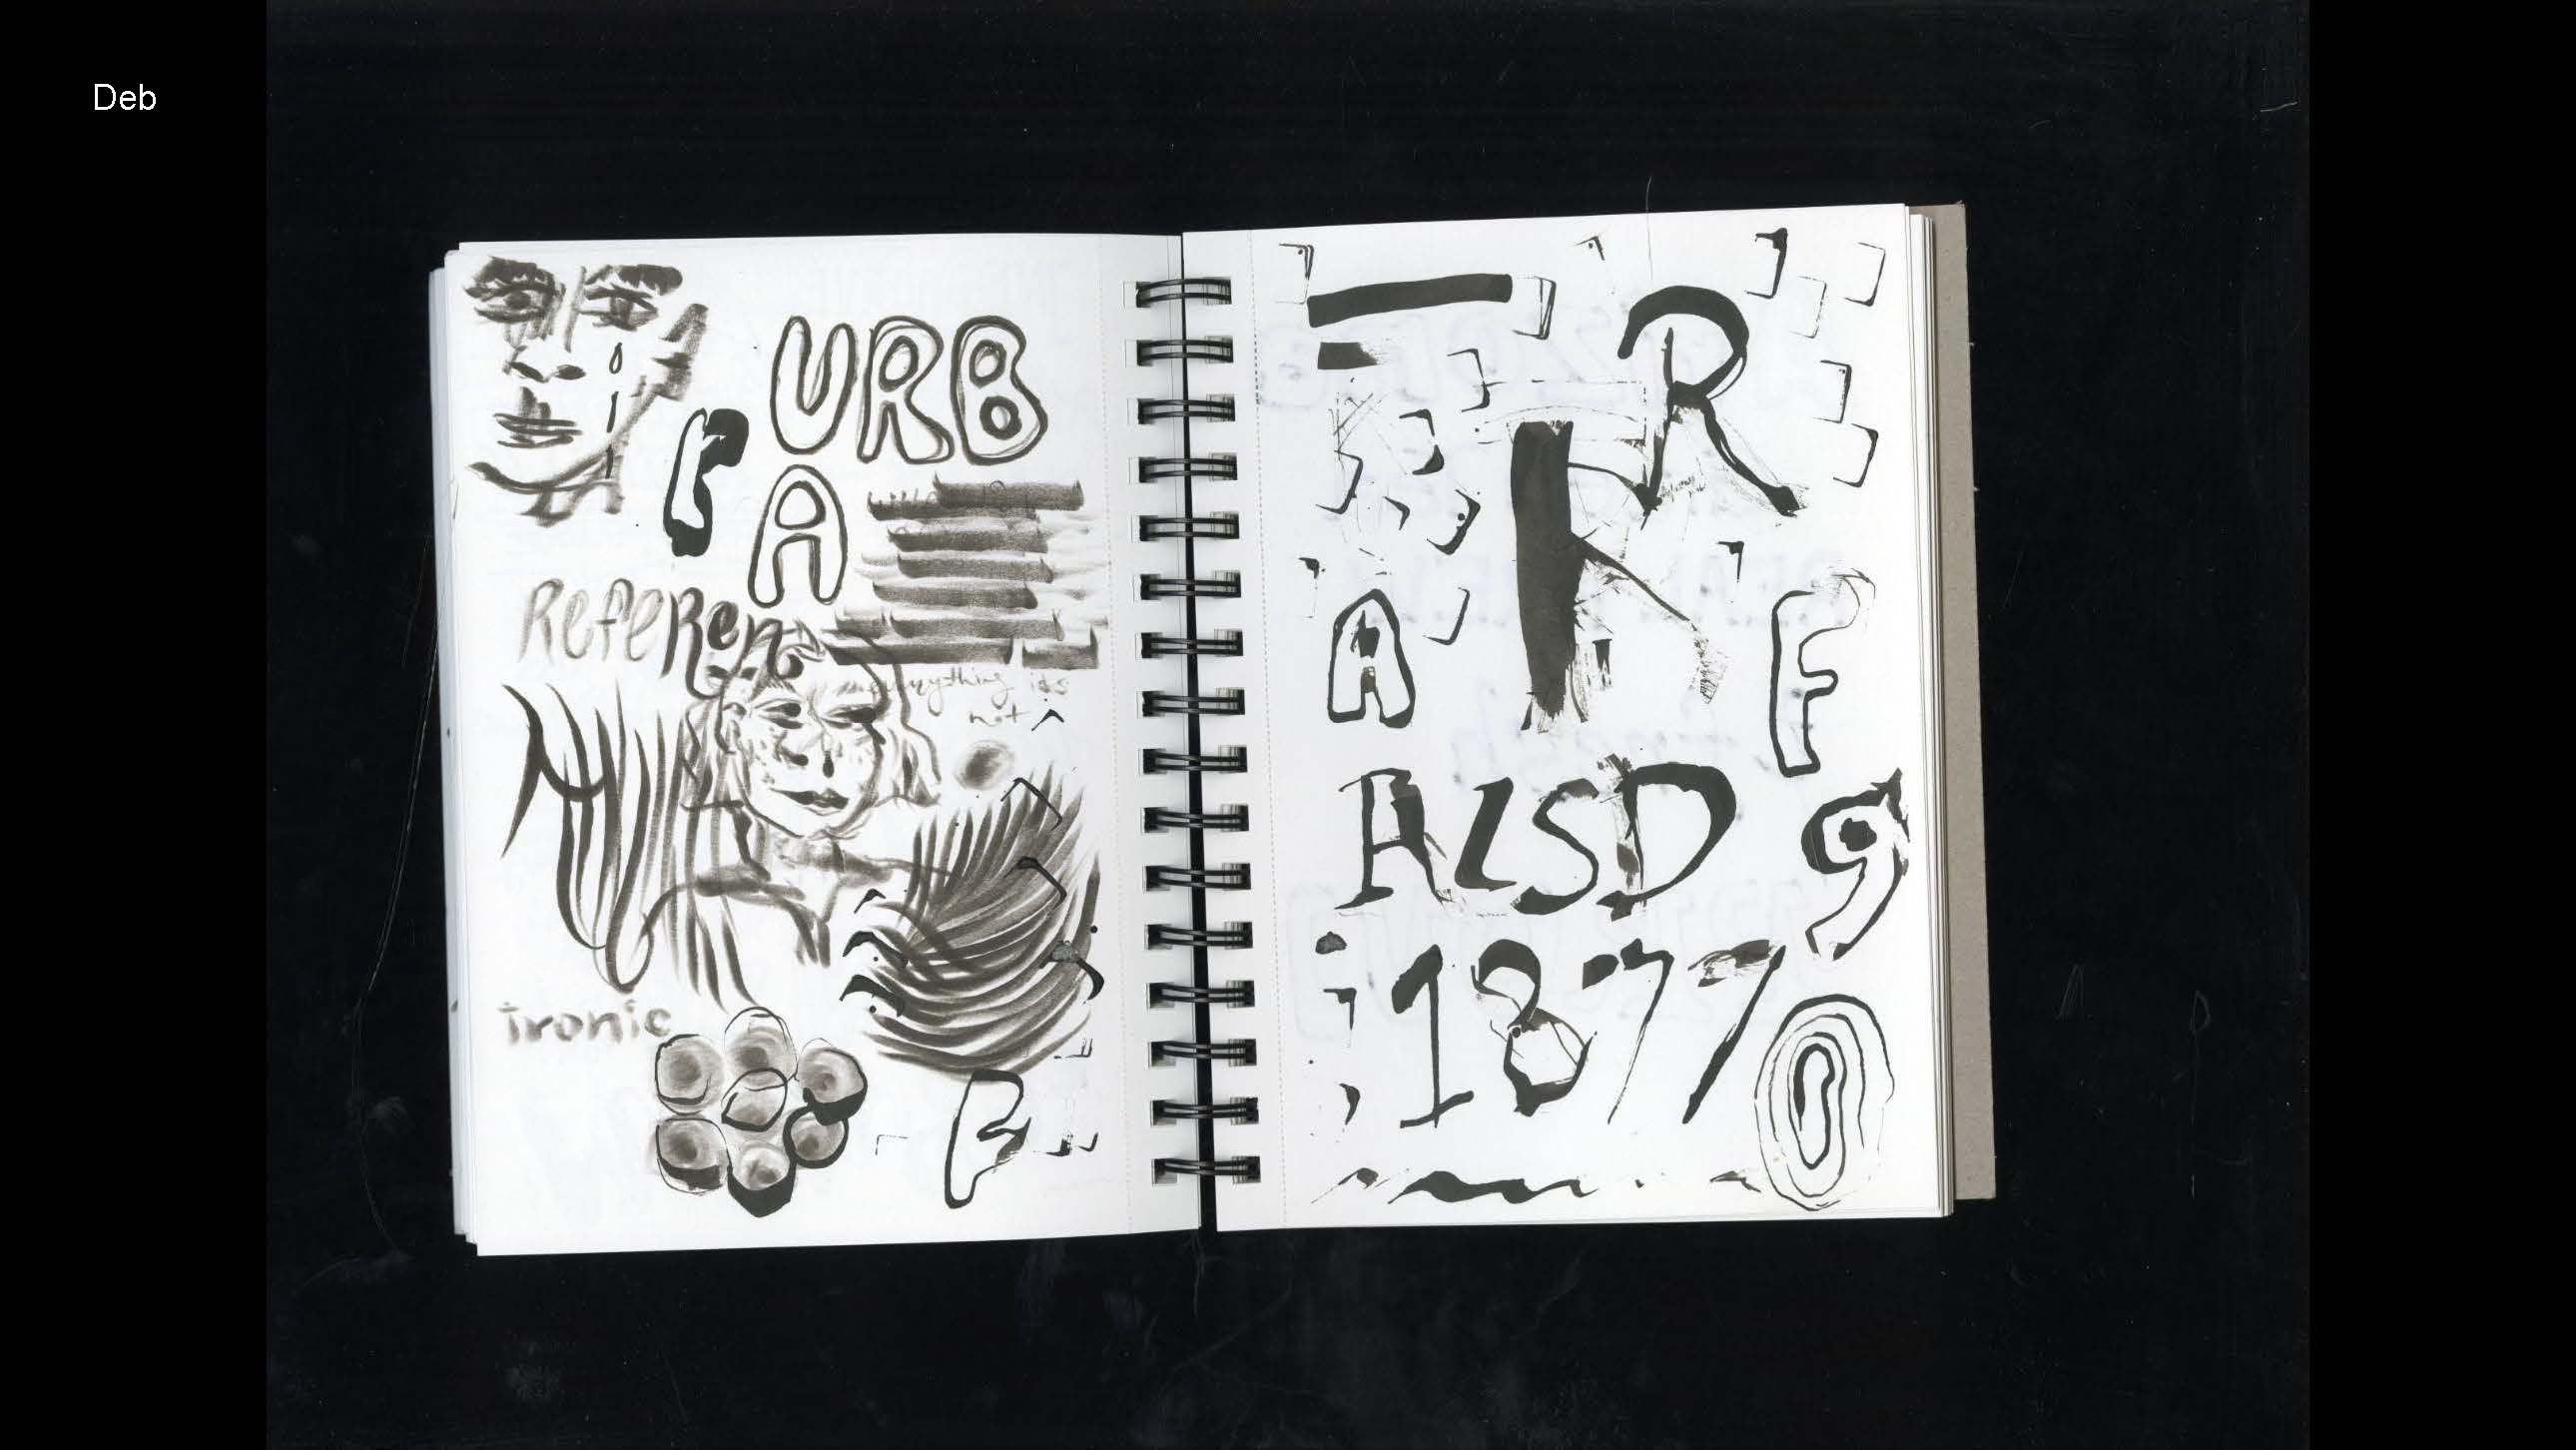 Deb
URB
A
Referen
everything is
not
ironic
B
R
R
A
F
ALSD
9
1877
0